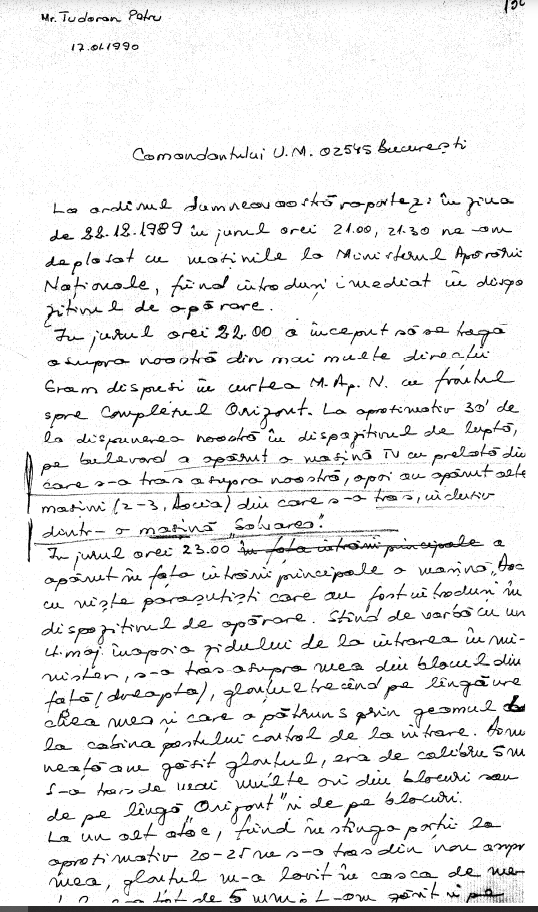 Mr. Tudoran Petru
17.01.1990
Comandantului U.M. 02545 București
La ordinul dumneavoastră raportez: în ziua
de 22.12.1989 în jurul orei 21.00, 21.30 ne-am
deplasat cu mașinile la Ministerul Apărării
Naționale, fiind introduși imediat în dispo
zitivul de apărare.
În jurul orei 22.00 a început să se tragă
asupra noastră din mai multe direcții
Eram dispuși în curtea M.Ap.N. cu frontul
spre Complexul Orizont. La aproximativ 30' de
la dispunerea noastră în dispozitivul de luptă,
pe bulevard a apărut o mașină TV cu prelată din
care s-a tras asupra noastră, apoi au apărut alte
mașini (2-3, Dacia) din care s-a tras, inclusiv
dintr-o mașină "Salvarea".
În jurul orei 23.00 în fața intrării principale a
apărut în fața intrării principale o mașină
cu niște parașutiști care au fost introduși în
dispozitivul de apărare. Stînd de vorbă cu un
lt.maj. înapoia zidului de la intrarea în mi-
nister, s-a tras asupra mea din blocul din
față (dreapta), glonțul trecînd pe lîngă ure
chea mea și care a pătruns prin geamul
la cabina postului control de la intrare.
neață am găsit glonțul, era de calibru 5 m
S-a tras de mai multe ori din blocuri sau
de pe lîngă "Orizont" și de pe blocuri.
La un alt atac, fiind în stînga porții la
aproximativ 20-25 m s-a tras din nou asupr
mea, glonțul m-a lovit în casca de me-
tot de 5 mm și l-am găsit și pe